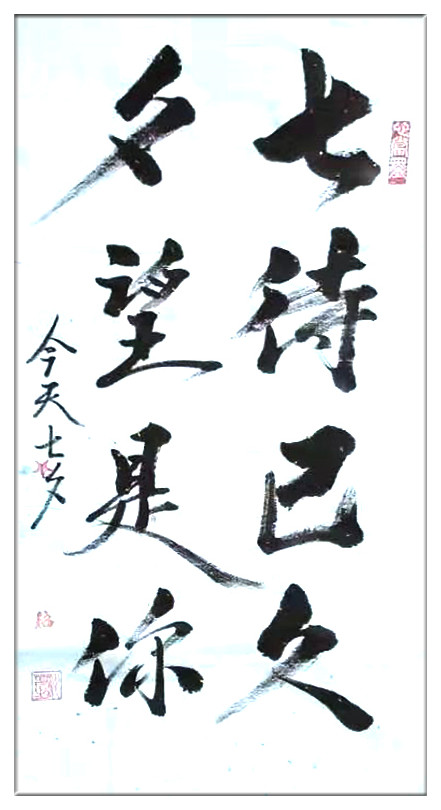 七待已久
夕望是你
今天七夕